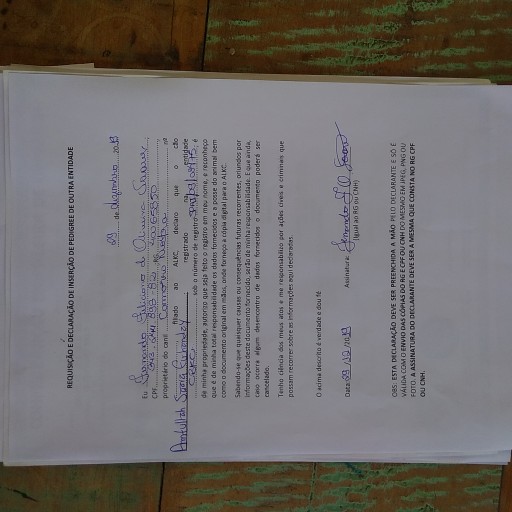 REQUISIÇÃO E DECLARAÇÃO DE INSERÇÃO DE PEDIGREE DE OUTRA ENTIDADE
29 de dezembro 2019
Eu Fernando de Oliveira
CPF RG
proprietário do canil na
filiado ao ALKC, declaro que o cão
registrado na entidade
sob o número de registro é
de minha propriedade, autorizo que seja feito o registro em meu nome, e reconheço
que é de minha total responsabilidade os dados fornecidos e a posse do animal bem
como o documento original em mãos, onde forneço a cópia digital para o ALKC.
Sabendo-se que quaisquer causas ou consequências futuras recorrentes, oriundos por
informações deste documento fornecido, serão de minha responsabilidade. E que ainda,
caso ocorra algum desencontro de dados fornecidos o documento poderá ser
cancelado.
Tenho ciência dos meus atos e me responsabilizo por ações cíveis e criminais que
possam recorrer sobre as informações aqui declaradas.
O acima descrito é verdade e dou fé
Data: 29 /2019 Assinatura:
(igual ao RG ou CNH)
OBS: ESTA DECLARAÇÃO DEVE SER PREENCHIDA A MÃO PELO DECLARANTE E SÓ É
VÁLIDA COM O ENVIO DAS CÓPIAS DO RG E CPF OU CNH DO MESMO EM JPEG, PNG OU
FOTO. A ASSINATURA DO DECLARANTE DEVE SER A MESMA QUE CONSTA NO RG CPF
OU CNH.